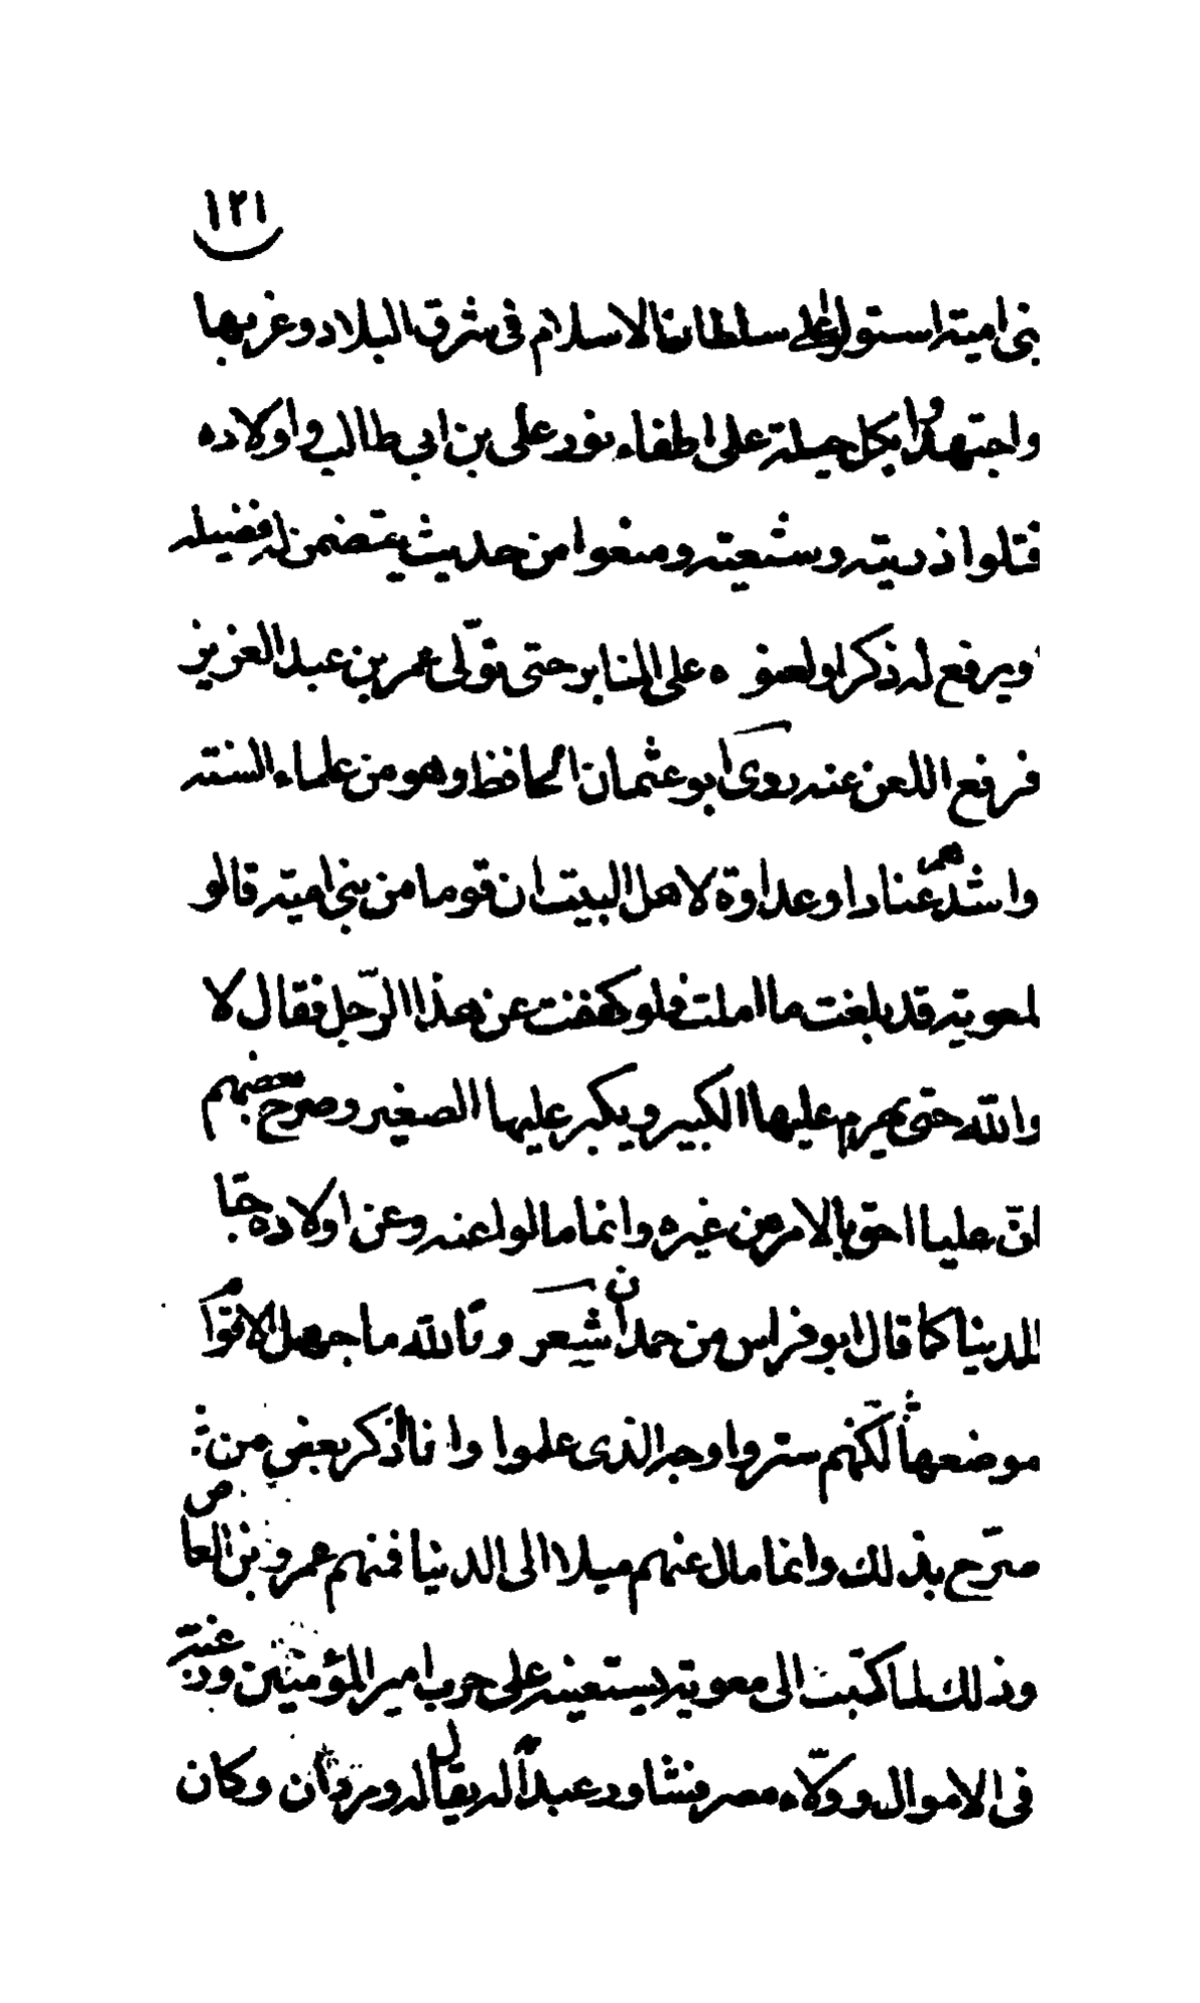 ١٢١
بنى امية استولوا على سلطان الاسلام فى شرق البلاد وغربها
واجتهدوا بكل حيلة على اطفاء نور على بن ابى طالب واولاده
قتلوا ذريته وشيعته ومنعوا من حديث يتضمن له فضيله
ويرفع له ذكرا ولعنوه على المنابر حتى تولّى عمر بن عبد العزيز
فرفع اللعن عنه روى ابو عثمان الحافظ وهو من علماء السنته
واشدهم عنادا وعداوة لاهل البيت ان قوما من بنى امية قالو
لمعوية قد بلغت ما املت فلو كففت عن هذا الرّجل فقال لا
والله حتى يهرم عليها الكبير ويكبر عليها الصغير وصرح بعضهم
انّ عليا احق بالامر من غيره وانما مالوا عنه وعن اولاده حبّا
للدينا كما قال ابو فراس من حمدان شعر وتالله ما جهل الاقوام
موضعها لكنّهم ستروا وجه الذى علموا وانا اذكر بعض من
صرّح بذلك وانما مال عنهم ميلا الى الدنيا فمنهم عمرو بن العاص
وذلك لما كتبت الى معوية يستعينه على حرب امير المؤمنين ورغبته
فى الاموال وولّاه مصر فشاور عبدا له يقال له وردان وكان